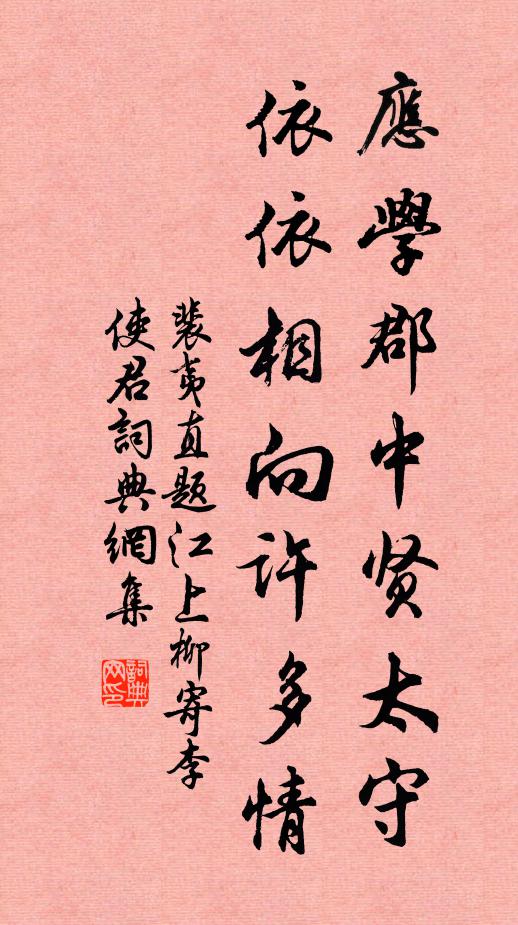 應學郡中贤太守
依依相向許多情
裴夷直题江上柳寄李
使君詞典網集
詞典网印